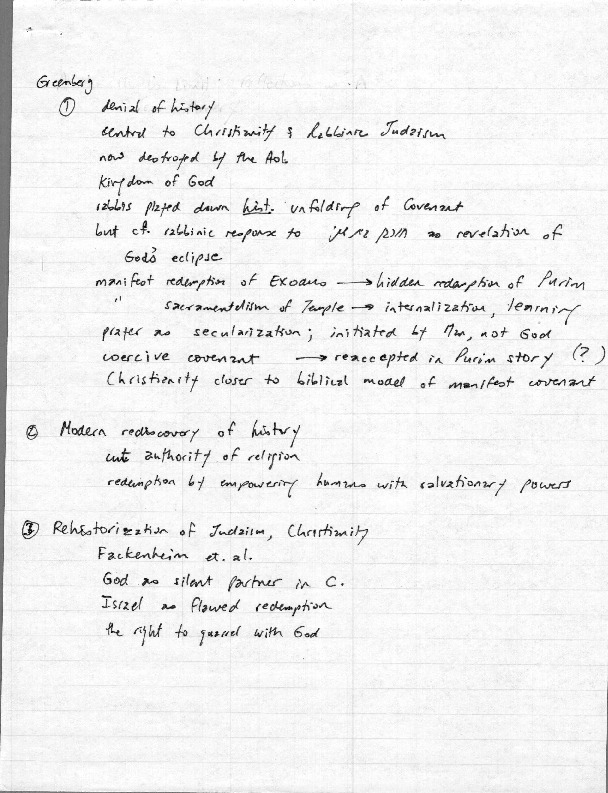 Greenberg
① denial of history
central to Christianity & Rabbinic Judaism
now destroyed by the AoL
Kingdom of God
rabbis played down hist. unfolding of Covenant
but cf. rabbinic response to חורבן as revelation of
God's eclipse
manifest redemption of Exodus → hidden redemption of Purim
" sacramentalism of Temple → internalization, learning
prayer as secularization; initiated by Man, not God
coercive covenant → reaccepted in Purim story (?)
Christianity closer to biblical model of manifest covenant
② Modern rediscovery of history
authority of religion
redemption by empowering humans with salvationary powers
③ Rehistorization of Judaism, Christianity
Fackenheim et. al.
God as silent partner in C.
Israel as flawed redemption
the right to quarrel with God